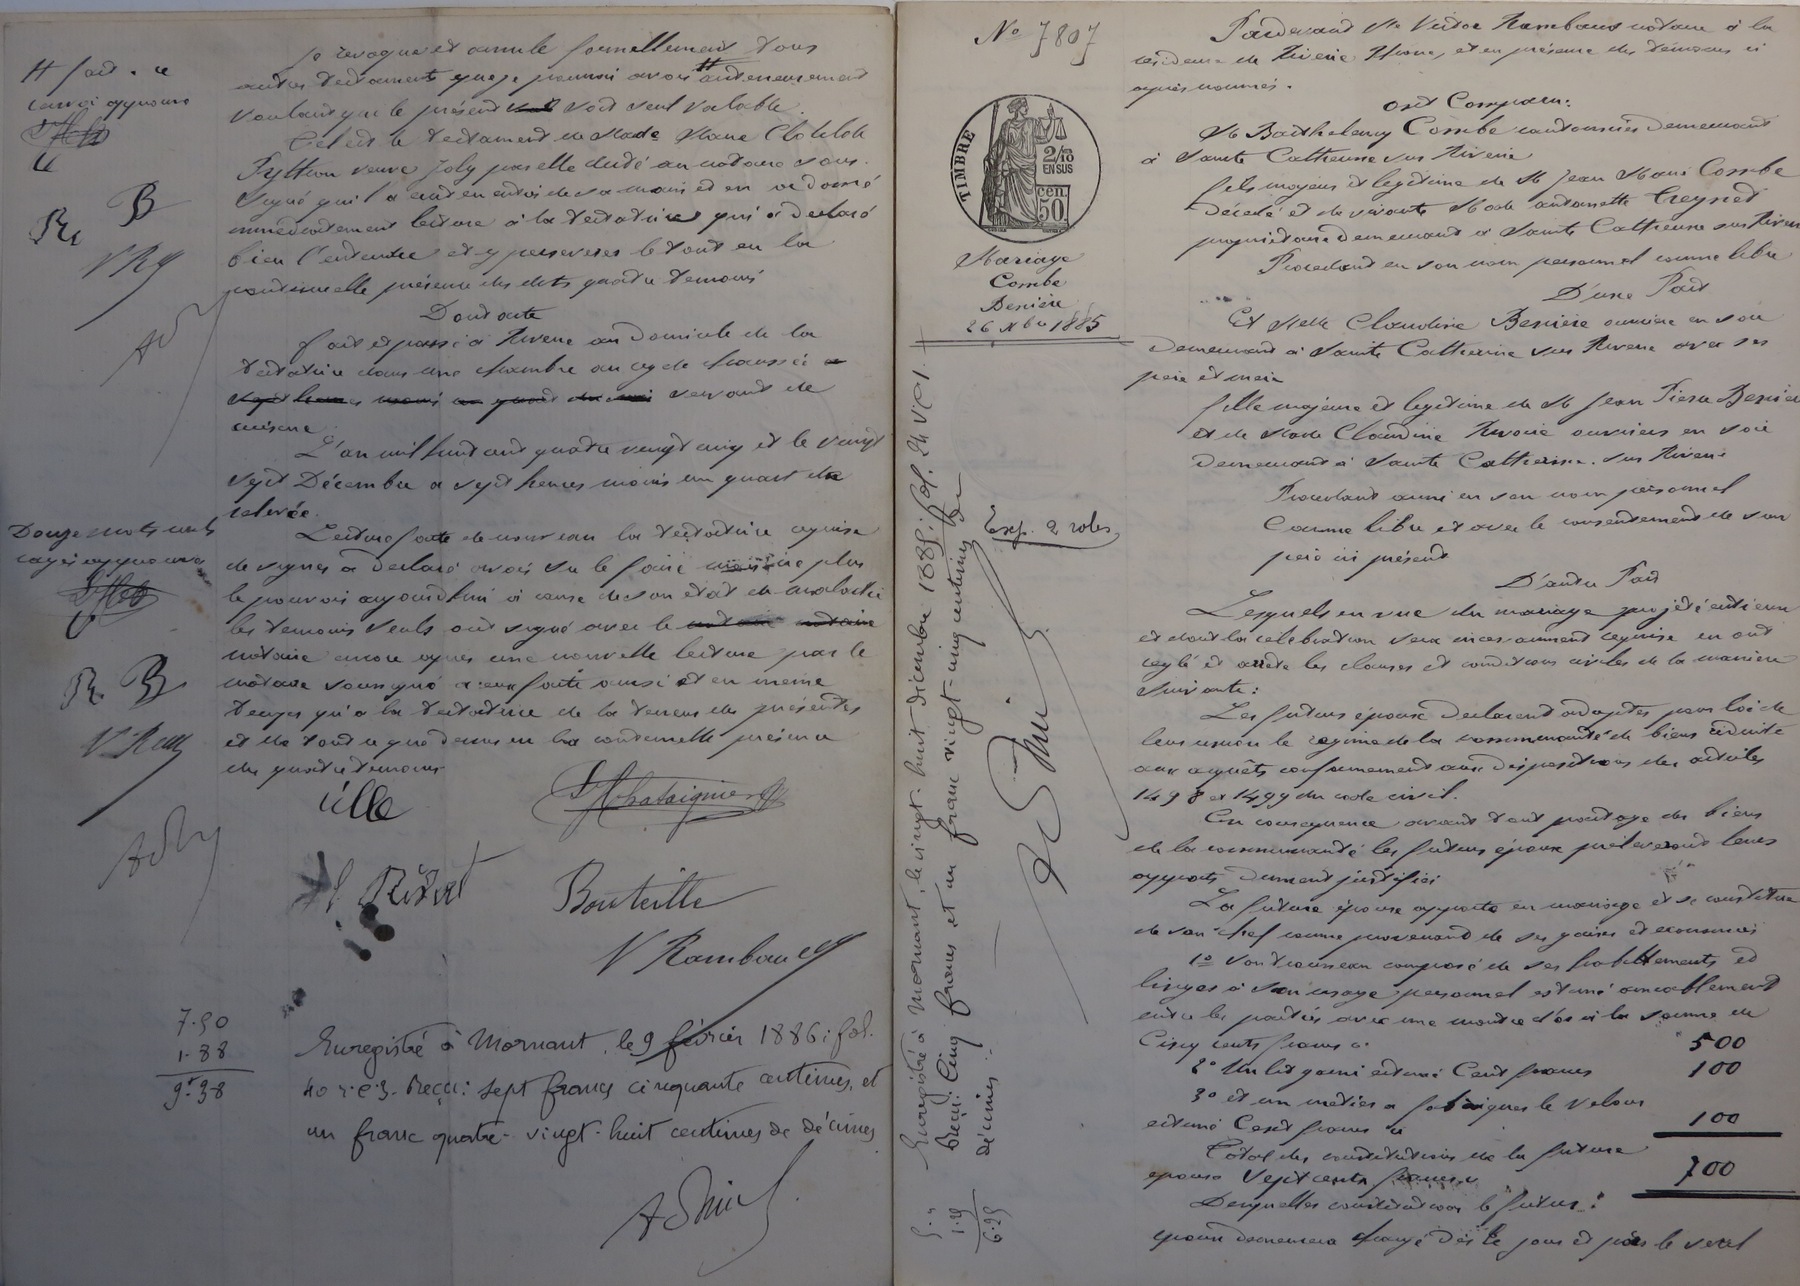 Je révoque et annule formellement tous
autres testaments que je pourrai avoir # antérieurement
voulant que le présent soit seul valable.
Tel est le testament de Made Marie Clotilde
Pythion veuve Joly par elle dicté au notaire sous-
signé qui l'a écrit en entier de sa main et en a donné
immédiatement lecture à la testatrice qui a déclaré
bien l'entendre et y persévérer le tout en la
continuelle présence des dits quatre témoins
Dont acte
fait et passé à Riverie au domicile de la
testatrice dans une chambre au rez de chaussée
servant de
cuisine
L'an mil huit cent quatre vingt cinq et le vingt
sept Décembre à sept heures moins un quart de
relevée.
Lecture faite de nouveau la testatrice requise
de signer a déclaré avoir su le faire mais ne plus
le pouvoir aujourd'hui à cause de son état de maladie
les témoins seuls ont signé avec le
notaire encore après une nouvelle lecture par le
notaire soussigné à eux faite aussi et en même
temps qu'à la testatrice de la teneur des présentes
et de tout ce que dessus en la continuelle présence
des quatre témoins
# fait. ce
renvoi approuvé
R B
VR
Douze mots nuls
rayés approuvés
R B
V Ram
Ville
Chataignier
Bouteille
V Rambaud
7.50
1.88
9.38
Enregistré à Mornant, le 9 février 1886; fol.
40 r. c. 3. Reçu: sept francs cinquante centimes, et
un franc quatre-vingt-huit centimes de décimes
No 7807
TIMBRE
2/10
EN SUS
50 cen
Mariage
Combe
Benière
26 Xbre 1885
Exp. 2 roles
Enregistré à Mornant, le vingt-huit décembre 1885; fol. 24 V c 1.
Reçu: Cinq francs et un franc vingt-cinq centimes de
décimes.
5. "
1.25
6.25
Pardevant Me Victor Rambaud notaire à la
résidence de Riverie Rhône, et en présence des témoins ci
après nommés.
Ont Comparu:
M Barthelemy Combe cantonnier demeurant
à Sainte Catherine sur Riverie
fils majeur et légitime de M Jean Marie Combe
décédé et de vivante Made Antoinette Creynet
propriétaire demeurant à Sainte Catherine sur Riverie
Procédant en son nom personnel comme libre
D'une Part
Et Melle Claudine Benière ouvrière en soie
demeurant à Sainte Catherine sur Riverie avec ses
père et mère
fille majeure et légitime de M Jean Pierre Benière
et de Made Claudine Rivoire ouvriers en soie
demeurant à Sainte Catherine sur Riverie
Procédant aussi en son nom personnel
comme libre et avec le consentement de son
père ici présent
D'autre Part
Lesquels en vue du mariage projeté entr'eux
et dont la célébration sera incessamment requise en ont
réglé et arrêté les clauses et conditions civiles de la manière
suivante:
Les futurs époux déclarent adopter pour loi de
leur union le régime de la communauté de biens réduite
aux acquêts conformément aux dispositions des articles
1498 et 1499 du code civil.
En conséquence avant tout partage des biens
de la communauté les futurs époux prélèveront leurs
apports dûment justifiés
La future épouse apporte en mariage et se constitue
de son chef comme provenant de ses gains et économies
1o son trousseau composé de ses habillements et
linges à son usage personnel estimé amiablement
entre les parties avec une montre d'or à la somme de
Cinq cents francs ci 500
2o Un lit garni estimé Cent francs 100
3o et un métier à fabriquer le velours
estimé Cent francs ci 100
Total des constitutions de la future
épouse Sept cents francs 700
Desquelles constitutions le futur
époux demeurera chargé dès le jour et par le seul